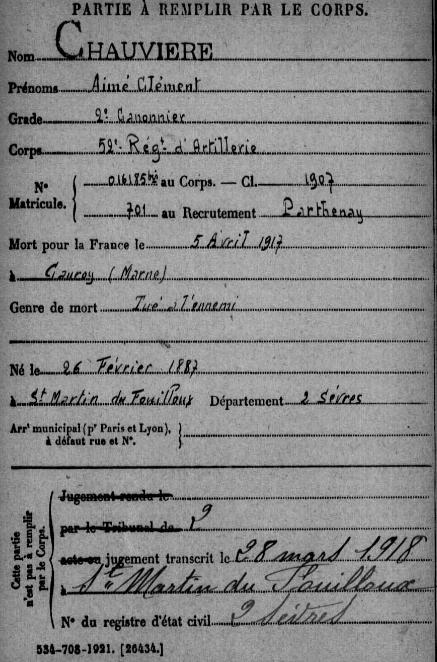 PARTIE À REMPLIR PAR LE CORPS.
Nom CHAUVIERE
Prénoms Aimé Clément
Grade 2e Canonnier
Corps 52e Régt d'Artillerie
N° Matricule. { au Corps. — Cl. 1907
701 au Recrutement Parthenay
Mort pour la France le 5 Avril 1917
à Cauroy (Marne)
Genre de mort Tué à l'ennemi
Né le 26 Février 1887
à St Martin du Fouilloux Département 2 Sèvres
Arrt municipal (pr Paris et Lyon), à défaut rue et N°. }
Cette partie n'est pas à remplir par le Corps.
Jugement rendu le
par le Tribunal de
acte ou jugement transcrit le 28 mars 1918
à St Martin du Fouilloux
2 Sèvres
N° du registre d'état civil
534-708-1921. [26434.]